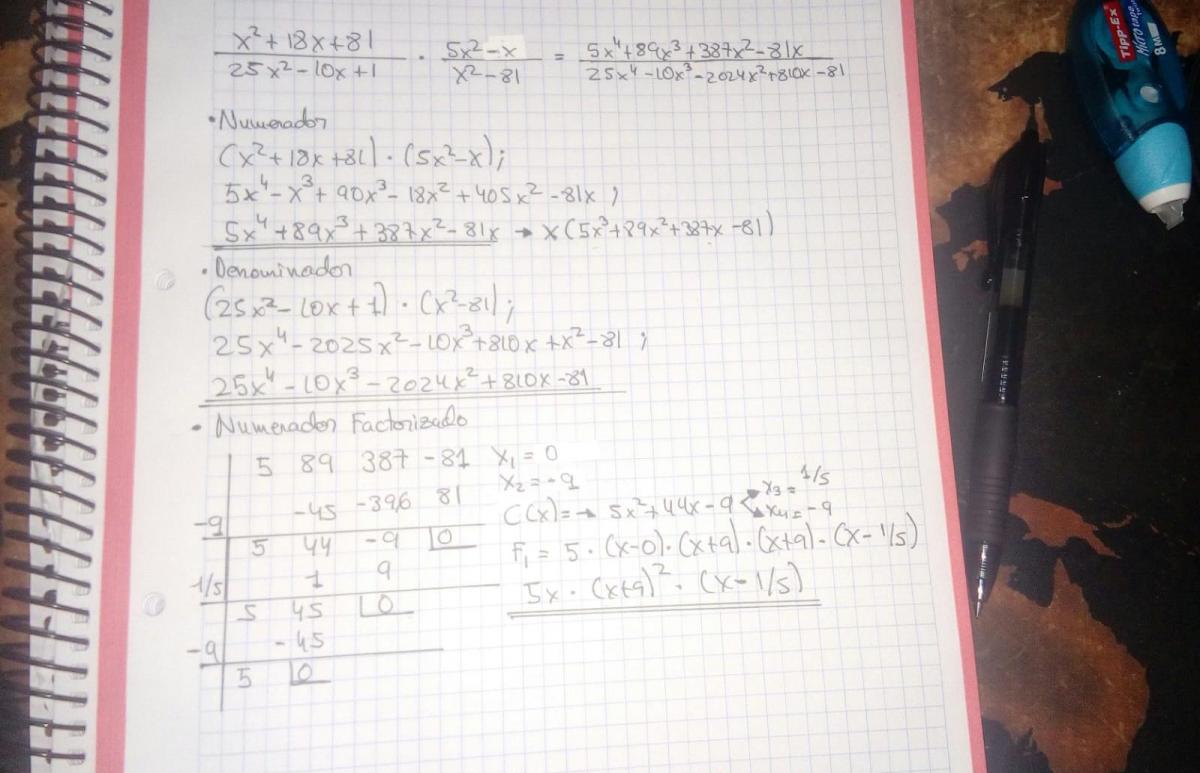 x²+18x+81 / 25x²-10x+1 · 5x²-x / x²-81 = 5x⁴+89x³+387x²-81x / 25x⁴-10x³-2024x²+810x-81
• Numerador
(x²+18x+81)·(5x²-x);
5x⁴-x³+90x³-18x²+405x²-81x;
5x⁴+89x³+387x²-81x → x(5x³+89x²+387x-81)
• Denominador
(25x²-10x+1)·(x²-81);
25x⁴-2025x²-10x³+810x+x²-81;
25x⁴-10x³-2024x²+810x-81
• Numerador Factorizado
5 89 387 -81
-9 -45 -396 81
5 44 -9 0
1/5 1 9
5 45 0
-9 -45
5 0
x₁=0
x₂=-9
C(x)=→ 5x²+44x-9 x₃=1/5 x₄=-9
F₁=5·(x-0)·(x+9)·(x+9)·(x-1/5)
5x·(x+9)²·(x-1/5)
TIPP-EX
MICRO tape
8M